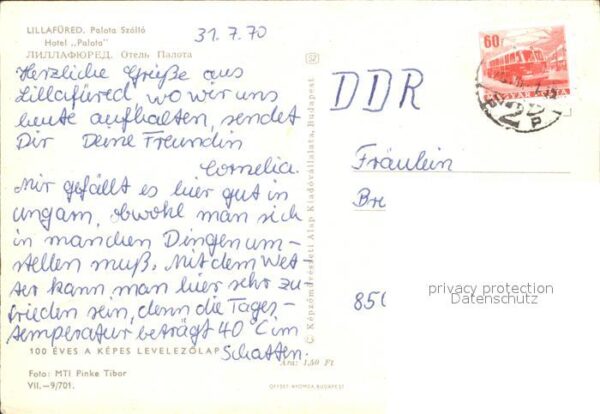 LILLAFÜRED. Palota Szálló
Hotel „Palota"
ЛИЛЛАФЮРЕД. Отель Палота
31.7.70
Herzliche Grüße aus
Lillafüred, wo wir uns
heute aufhalten, sendet
Dir Deine Freundin
Cornelia.
Mir gefällt es hier gut in
Ungarn, obwohl man sich
in manchen Dingen um-
stellen muß. Mit dem Wet-
ter kann man hier sehr zu-
frieden sein, denn die Tages-
temperatur beträgt 40°C im
Schatten.
100 ÉVES A KÉPES LEVELEZŐLAP
Ára: 1,50 Ft
Foto: MTI Pinke Tibor
VII.—9/701.
OFFSET-NYOMDA, BUDAPEST
C Képzőművészeti Alap Kiadóvállalata, Budapest
60f
MAGYAR POSTA
DDR
Fräulein
Br
850
privacy protection
Datenschutz